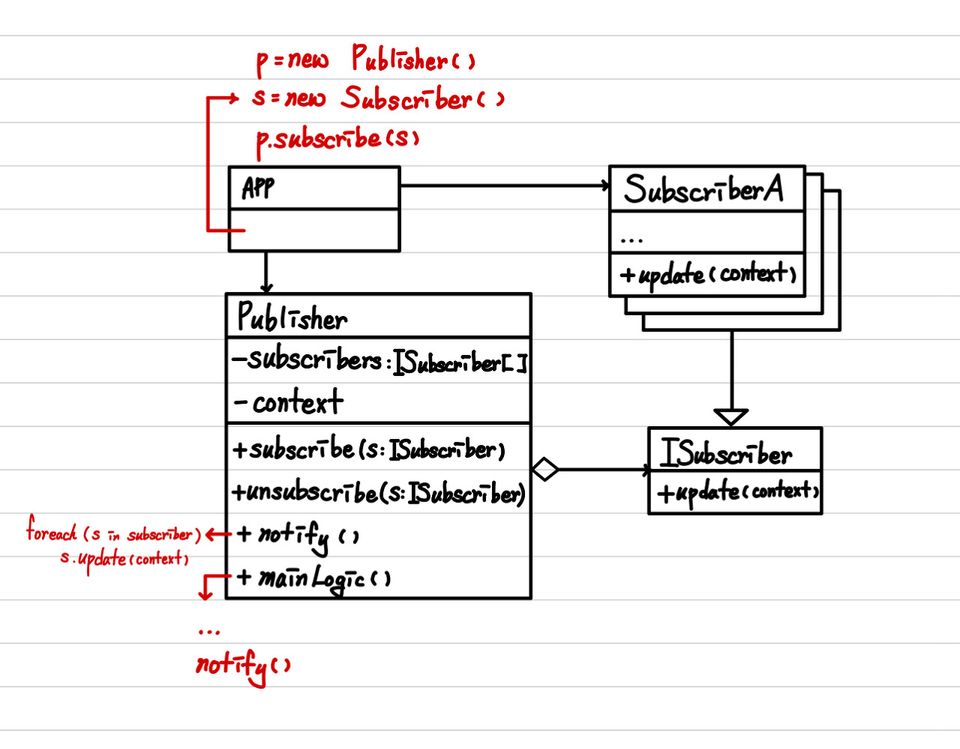 p=new Publisher()
s=new Subscriber()
p.subscribe(s)
APP
SubscriberA
...
+update(context)
Publisher
-subscribers:ISubscriber[]
-context
+subscribe(s:ISubscriber)
+unsubscribe(s:ISubscriber)
+notify()
+mainLogic()
ISubscriber
+update(context)
foreach(s in subscriber)
s.update(context)
...
notify()